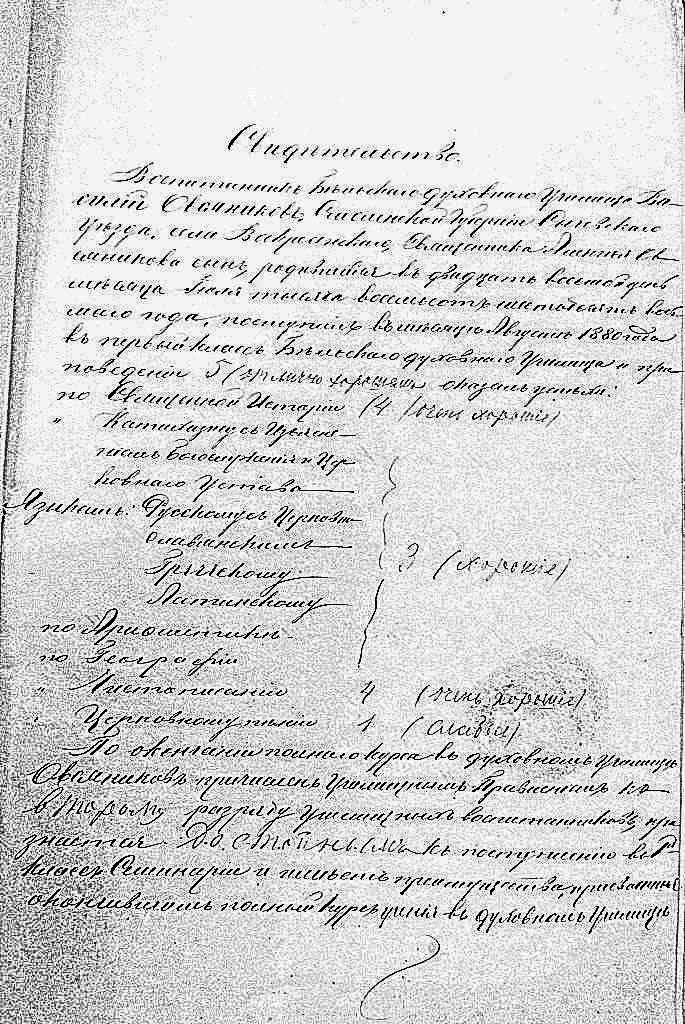 Свидетельство.
Воспитанникъ Бѣльскаго духовнаго Училища Ва-
силій Овсянниковъ, Смоленской Губерніи Сычевскаго
Уѣзда, села Священника сынъ Ов-
сянникова сынъ, родившійся въ двадцать восьмой день
мѣсяца Іюля тысяча восемьсотъ шестьдесятъ вось-
маго года, поступилъ въ мѣсяцѣ Августѣ 1880 года
въ первый классъ Бѣльскаго духовнаго Училища и при
поведеніи 5 (отлично хорошемъ) оказалъ успѣхи:
по Священной Исторіи (4 (очень хорошіе)
" Катихизису съ Изъясне-
ніемъ богослуженія и Цер-
ковнаго Устава
Языкамъ: Русскому съ Церковно-
славянскимъ
Греческому
Латинскому
3 (хорошіе)
по Ариѳметикѣ
по Географіи
" Чистописанію 4 (очень хорошіе)
" Церковному пѣнію 1 (слабые)
По окончаніи полнаго курса въ духовномъ Училищѣ
Овсянниковъ причисленъ Училищнымъ Правленіемъ ко
второму разряду училищныхъ воспитанниковъ, при-
знается достойнымъ къ поступленію въ 1й
классъ Семинаріи и имѣетъ преимущества, присвоенныя
окончившимъ полный курсъ ученія въ духовномъ Училищѣ